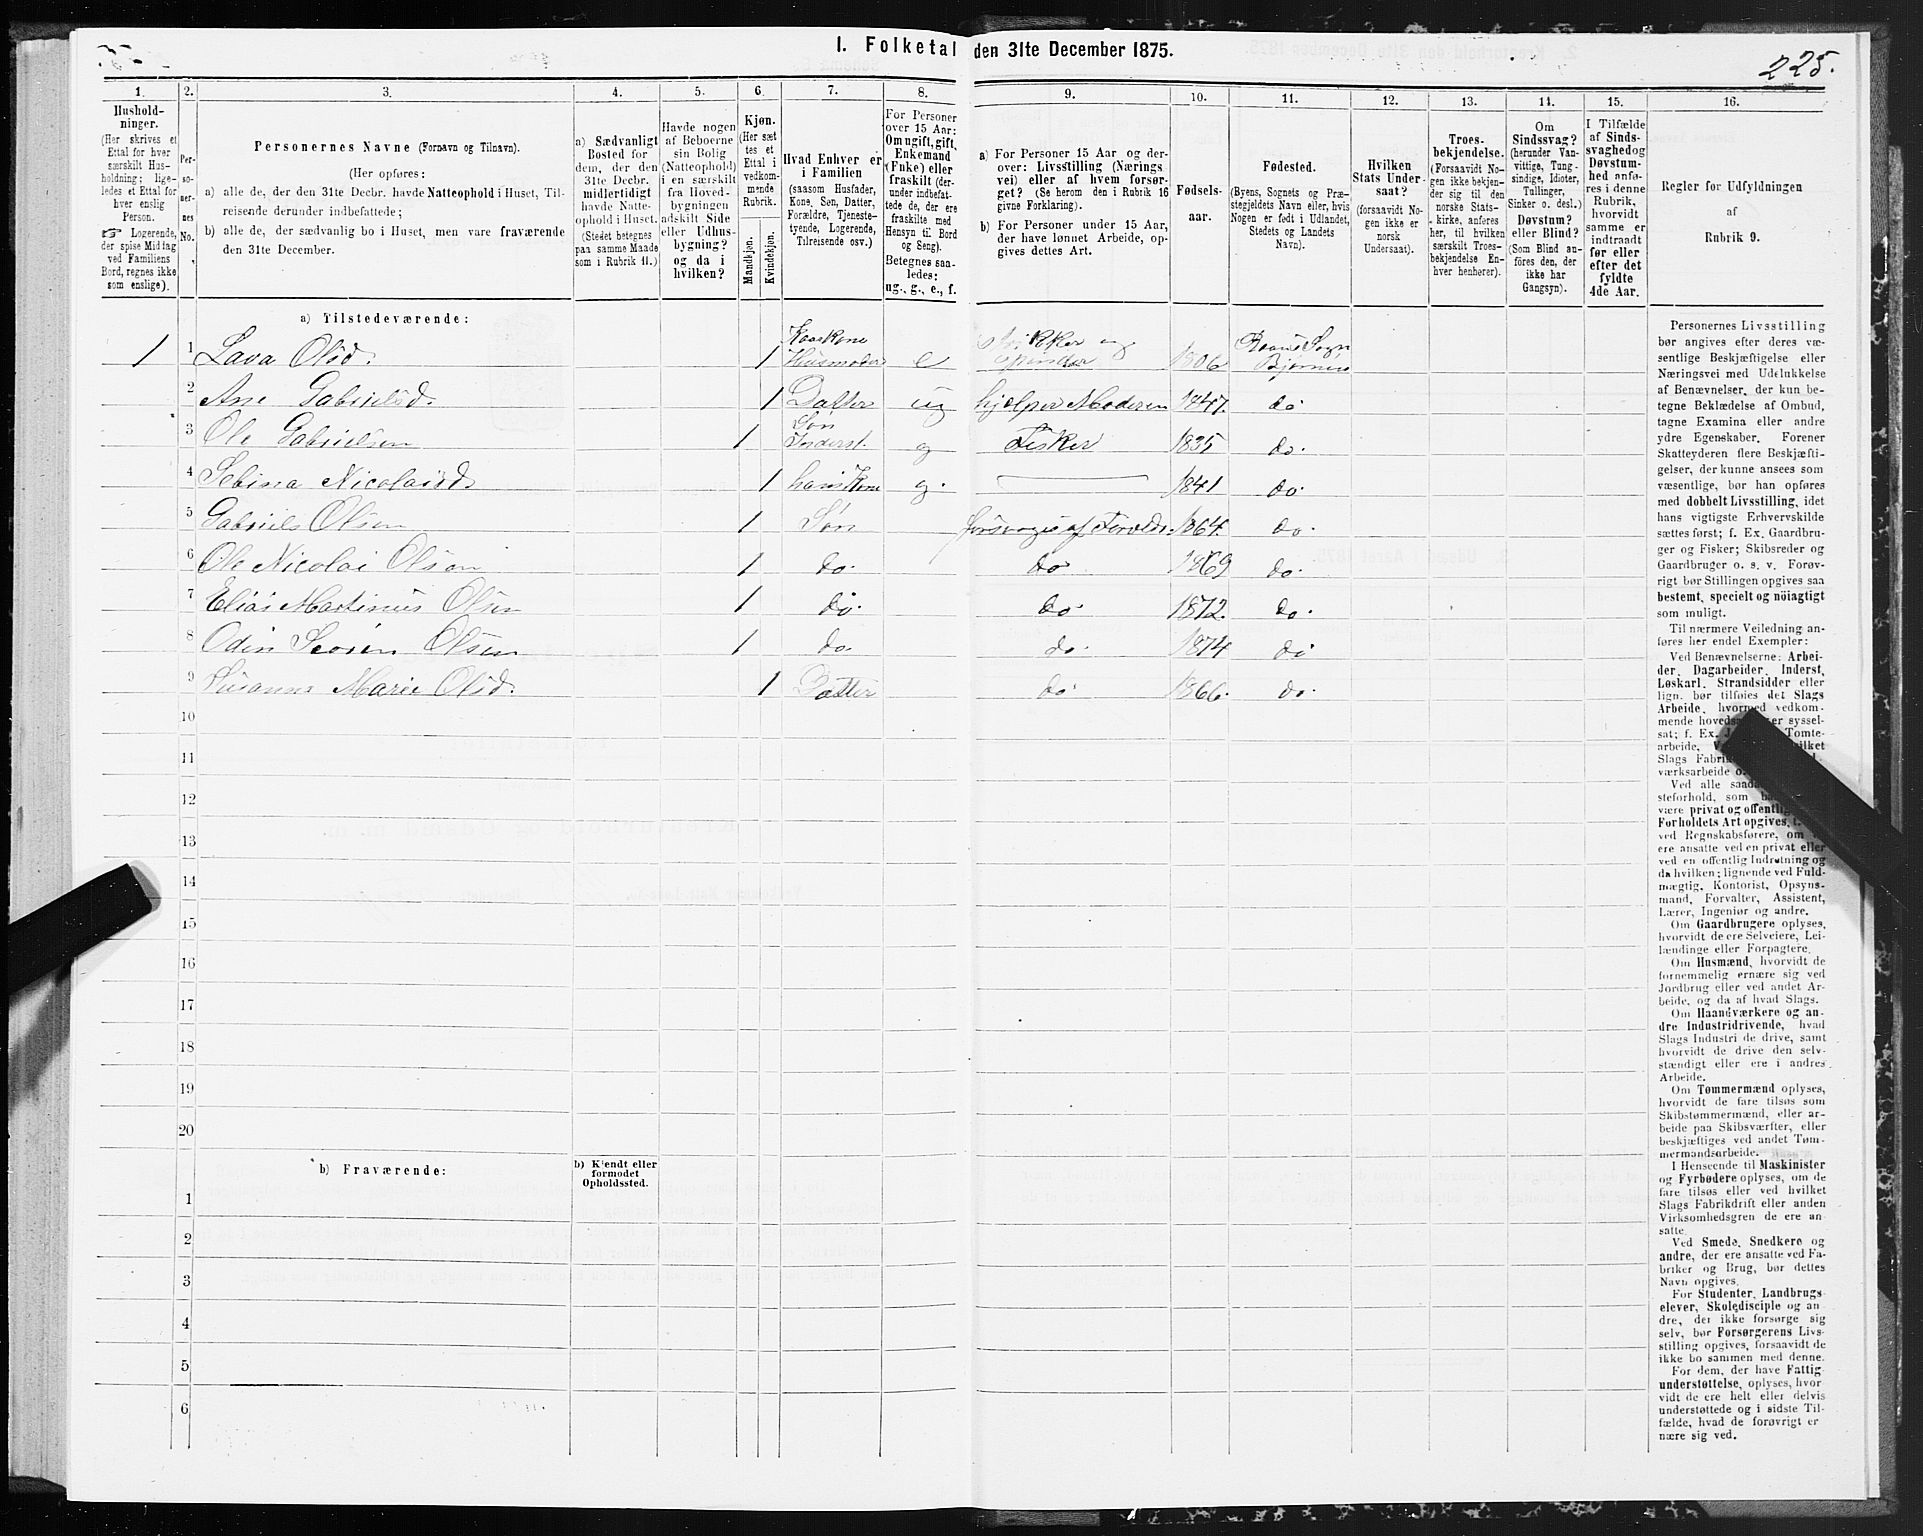 I. Folketal den 31te December 1875.
225.
1.
2.
3.
4.
5.
6.
7.
8.
9.
10.
11.
12.
13.
14.
15.
16.
Hushold-
ninger.
(Her skrives et
Ettal for hver
særskilt Hus-
holdning; lige-
ledes et Ettal for
hver enslig
Person.
☞ Logerende,
der spise Middag
ved Familiens
Bord, regnes ikke
som enslige).
Per-
so-
ner-
nes
No.
Personernes Navne (Fornavn og Tilnavn).
(Her opføres:
a) alle de, der den 31te Decbr. havde Natteophold i Huset, Til-
reisende derunder indbefattede;
b) alle de, der sædvanlig bo i Huset, men vare fraværende
den 31te December.
a) Sædvanligt
Bosted for
dem, der den
31te Decbr.
midlertidigt
havde Natte-
ophold i Huset.
(Stedet betegnes
paa samme Maade
som i Rubrik 11.)
Havde nogen
af Beboerne
sin Bolig
(Natteophold)
i en særskilt
fra Hoved-
bygningen
adskilt Side
eller Udhus-
bygning?
og da i
hvilken?
Kjøn.
(Her sæt
tes et
Ettal i
vedkom-
mende
Rubrik.
Mandkjøn.
Kvindekjøn.
Hvad Enhver er
i Familien
(saasom Husfader,
Kone, Søn, Datter,
Forældre, Tjeneste-
tyende, Logerende,
Tilreisende osv.)
For Personer
over 15 Aar:
Om ugift, gift,
Enkemand
(Enke) eller
fraskilt (der-
under indbefat-
tede de, der ere
fraskilte med
Hensyn til Bord
og Seng).
Betegnes saa-
ledes:
ug., g., e., f.
a) For Personer 15 Aar og der-
over: Livsstilling (Nærings
vei) eller af hvem forsør-
get? (Se herom den i Rubrik 16
givne Forklaring).
b) For Personer under 15 Aar,
der have lønnet Arbeide, op-
gives dettes Art.
Fødsels-
aar.
Fødested.
(Byens, Sognets og Præ-
stegjeldets Navn eller, hvis
Nogen er født i Udlandet,
Stedets og Landets
Navn).
Hvilken
Stats Under-
saat?
(forsaavidt No-
gen ikke er
norsk
Undersaat).
Troes-
bekjendelse.
(Forsaavidt No-
gen ikke bekjen-
der sig til den
norske Stats-
kirke, anføres
her, til hvilken
særskilt Troes-
bekjendelse En-
hver henhører).
Om
Sindssvag?
(herunder Van-
vittige, Tung-
sindige, Idioter,
Tullinger,
Sinker o. desl.)
Døvstum?
eller Blind?
(Som Blind an-
føres den, der
ikke har
Gangsyn).
I Tilfælde
af Sinds-
svaghed og
Døvstum-
hed anfø-
res i denne
Rubrik,
hvorvidt
samme er
indtraadt
før eller
efter det
fyldte
4de Aar.
Regler for Udfyldningen
af
Rubrik 9.
a) Tilstedeværende:
1 1 Lava Olsd. 1 Kaarkone Husmoder e Strikker og Spinder 1806 Roans Sogn Bjørnør
2 Ane Gabrielsd. 1 Datter ug hjælper Moderen 1847. do
3 Ole Gabrielsen 1 Søn Inderst. g Fisker 1835 do.
4 Sebina Nicolaisd. 1 hans Kone g. 1841 do
5 Gabriels Olsen 1 Søn forsørges af Foreldr. 1864. do.
6 Ole Nicolai Olsen 1 do. do 1869 do.
7 Elias Martinus Olsen 1 do. do 1872. do.
8 Odin Seoren Olsen 1 do. do. 1874 do
9 Susanna Marie Olsd. 1 Datter do 1866. do.
10
11
12
13
14
15
16
17
18
19
20
b) Fraværende:
b) Kjendt eller
formodet
Opholdssted.
1
2
3
4
5
6
Personernes Livsstilling
bør angives efter deres væ-
sentlige Beskjæftigelse eller
Næringsvei med Udelukkelse
af Benævnelser, der kun be-
tegne Beklædelse af Ombud,
tagne Examina eller andre
ydre Egenskaber. Forener
Skatteyderen flere Beskjæfti-
gelser, der kunne ansees som
væsentlige, bør han opføres
med dobbelt Livsstilling, idet
hans vigtigste Erhvervskilde
sættes først; f. Ex. Gaardbru-
ger og Fisker; Skibsreder og
Gaardbruger o. s. v. Forøv-
rigt bør Stillingen opgives saa
bestemt, specielt og nöiagtigt
som muligt.
Til nærmere Veiledning an-
føres her endel Exempler:
Ved Benævnelserne: Arbei-
der, Dagarbeider, Inderst,
Løskarl, Strandsidder eller
lign. bør tilføies det Slags
Arbeide, hvormed vedkom-
mende hoved er syssel-
sat; f. Ex. Tomte-
arbeide, hvilket
Slags Fabrik
værksarbeide o.
Ved alle
steforhold, som
være privat og offentlig
Forholdets Art opgives,
ved Regnskabsførere, om
ere ansatte ved en privat eller
ved en offentlig Indretning og
da hvilken; lignende ved Fuld-
mægtig, Kontorist, Opsyns-
mand, Forvalter, Assistent,
Lærer, Ingeniør og andre.
Om Gaardbrugere oplyses,
hvorvidt de ere Selveiere, Lei-
lændinge eller Forpagtere.
Om Husmænd, hvorvidt de
fornemmelig ernære sig ved
Jordbrug eller ved andet Ar-
beide, og da af hvad Slags.
Om Haandværkere og an-
dre Industridrivende, hvad
Slags Industri de drive, samt
hvorvidt de drive den selv-
stændigt eller ere i andres
Arbeide.
Om Tømmermænd oplyses,
hvorvidt de fare tilsøs som
Skibstømmermænd, eller ar-
beide paa Skibsværfter, eller
beskjæftiges ved andet Tøm-
mermandsarbeide.
I Henseende til Maskinister
og Fyrbødere oplyses, om de
fare tilsøs eller ved hvilket
Slags Fabrikdrift eller anden
Virksomhedsgren de ere an-
satte.
Ved Smede, Snedkere og
andre, der ere ansatte ved Fa-
briker og Brug, bør dettes
Navn opgives.
For Studenter, Landbrugs-
elever, Skoledisciple og an-
dre, der ikke forsørge sig
selv, bør Forsørgerens Livs-
stilling opgives, forsaavidt de
ikke bo sammen med denne.
For dem, der have Fattig-
understøttelse, oplyses, hvor-
vidt de ere helt eller delvis
understøttede og i sidste Til-
fælde, hvad de forøvrigt er-
nære sig ved.